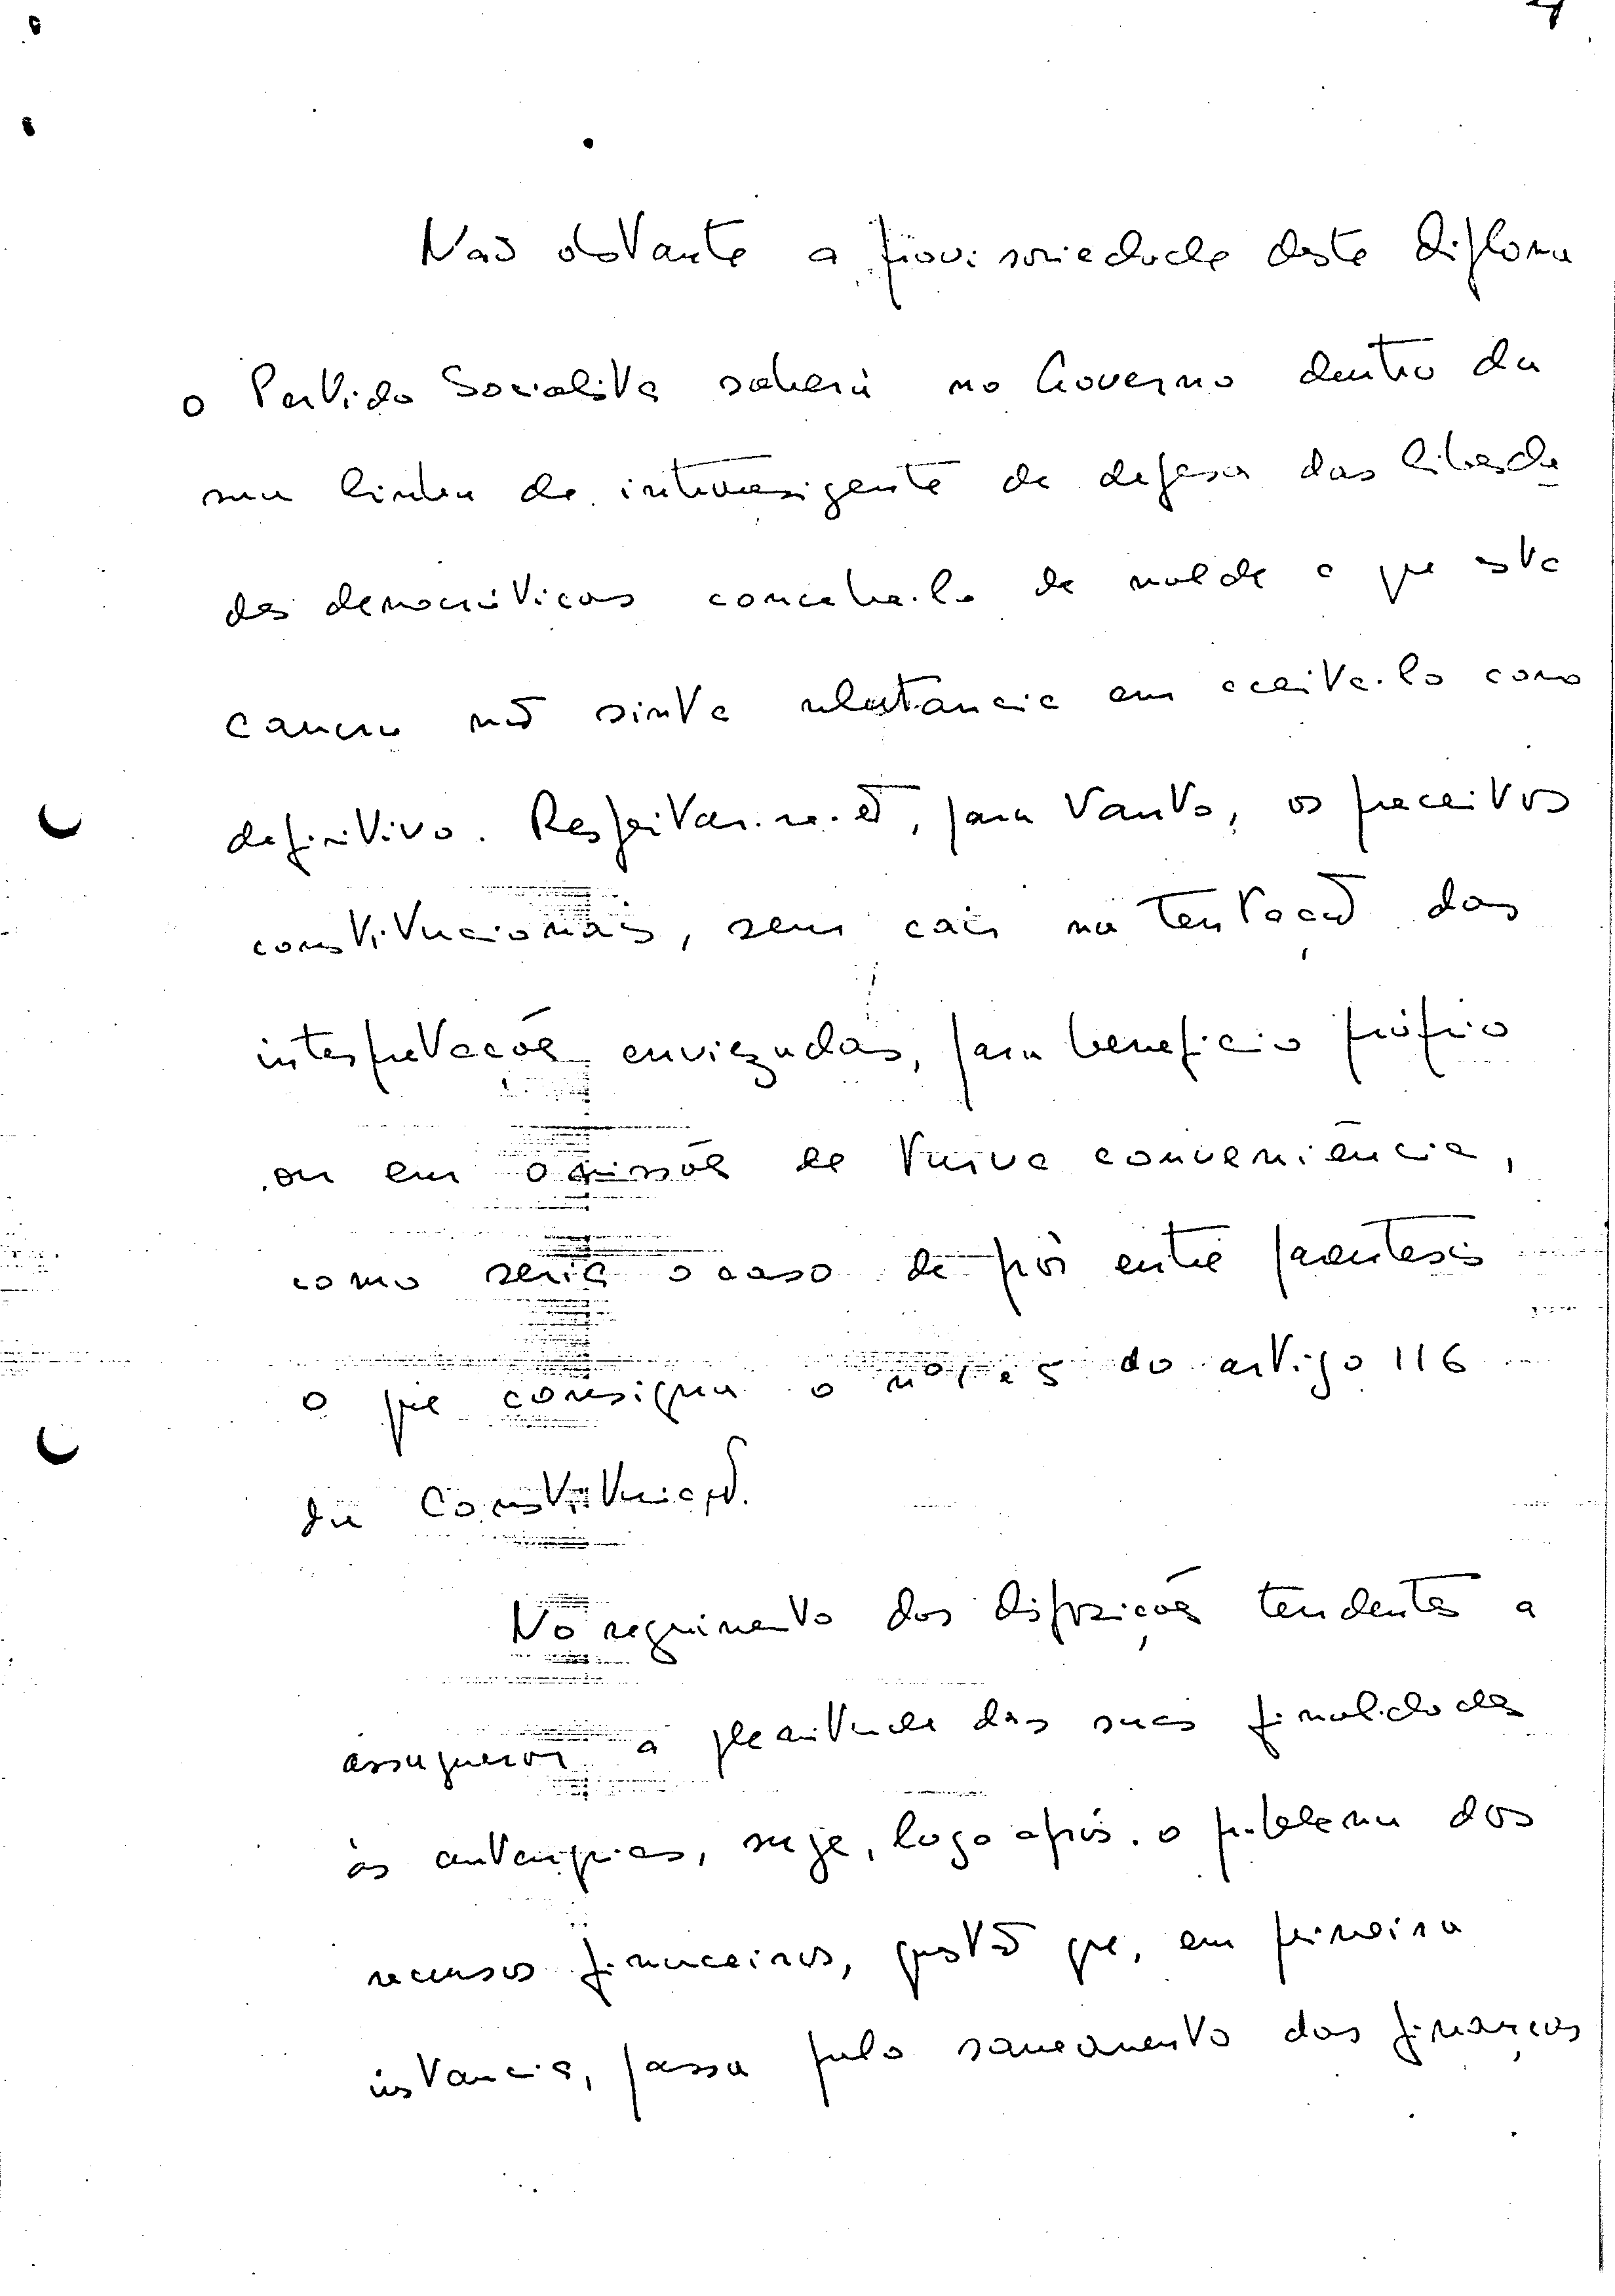 Não obstante a provisoriedade deste diploma
o Partido Socialista saberá no Governo dentro da
sua linha de intransigente de defesa das liberda
des democráticas concebe-lo de molde a que esta
camara não sinta relutancia em aceita-lo como
definitivo. Respeitar-se-ão, para tanto, os preceitos
constitucionais, sem cair na tentação das
interpretações enviezadas, para beneficio próprio
ou em omissões de turva conveniência,
como seria o caso de pôr entre parentesis
o que consigna o nº 1 e 5 do artigo 116
da Constituição.
No seguimento das disposições tendentes a
assegurar a plenitude das suas finalidades
às autarquias, surge, logo após. o problema dos
recursos financeiros, questão que, em primeira
instancia, passa pelo saneamento das finanças